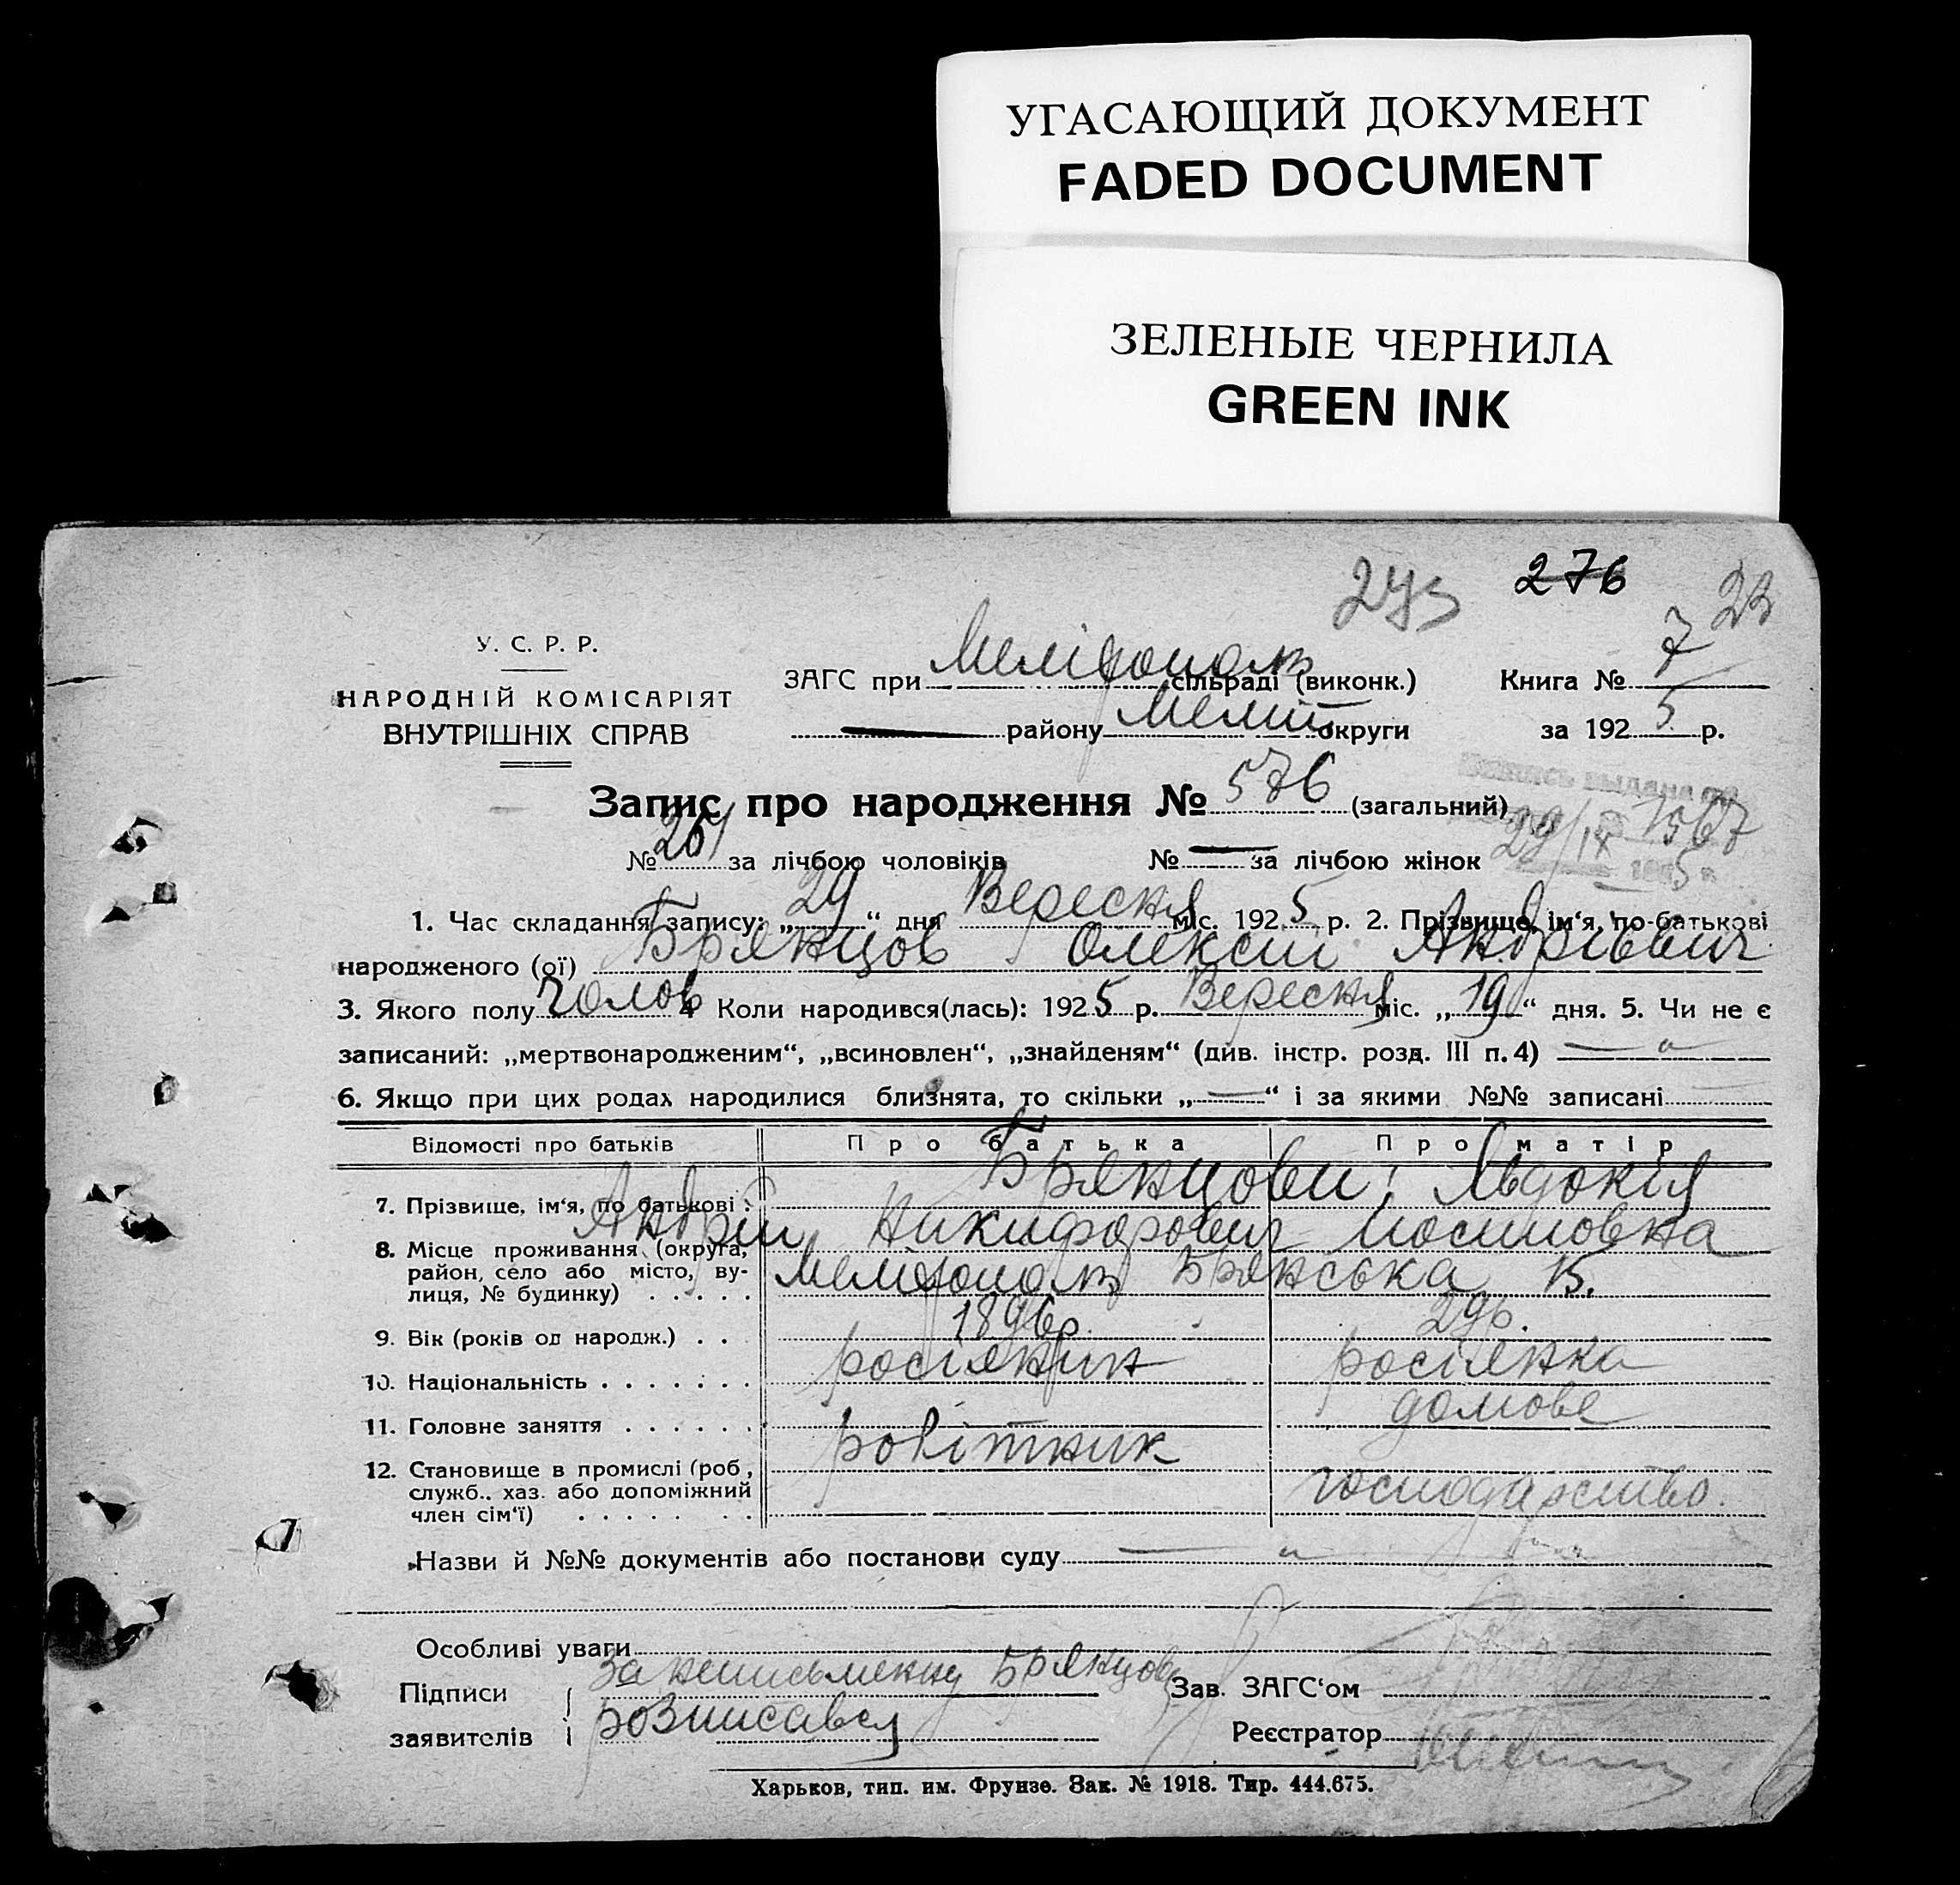 УГАСАЮЩИЙ ДОКУМЕНТ
FADED DOCUMENT
ЗЕЛЕНЫЕ ЧЕРНИЛА
GREEN INK
273 276 23
У. С. Р. Р.
НАРОДНІЙ КОМІСАРІЯТ
ВНУТРІШНІХ СПРАВ
ЗАГС при Мелітополь сільраді (виконк.) Книга № 7
району Меліт округи за 1925 р.
Запис про народження № 576 (загальний)
№ 261 за лічбою чоловіків № — за лічбою жінок
1. Час складання запису: „29“ дня Вересня міс. 1925 р. 2. Прізвище, ім‘я, по-батькові
народженого (ої) Брянцов Олексій Андрієвич
3. Якого полу чолов 4 Коли народився(лась): 1925 р. Вересня міс. „19“ дня. 5. Чи не є
записаний: „мертвонародженим“, „всиновлен“, „знайденям“ (див. інстр. розд. III п. 4) —
6. Якщо при цих родах народилися близнята, то скільки „—“ і за якими №№ записані
Відомості про батьків Про батька Про матір
7. Прізвище, ім‘я, по батькові: Брянцови: Явдокія
Андрій Никифорович Йосиповна
8. Місце проживання (округа, район, село або місто, вулиця, № будинку) Мелітополь Брянська 15.
9. Вік (років од народж.) 1896 р. 29 р.
10. Національність росіянин росіянка
11. Головне заняття робітник домове
12. Становище в промислі (роб., служб., хаз. або допоміжний член сім‘ї) господарство.
Назви й №№ документів або постанови суду —
Особливі уваги
Підписи заявителів За неписьменну Брянцову
розписався
Зав. ЗАГС‘ом
Реєстратор
Харьков, тип. им. Фрунзе. Зак. № 1918. Тир. 444.675.